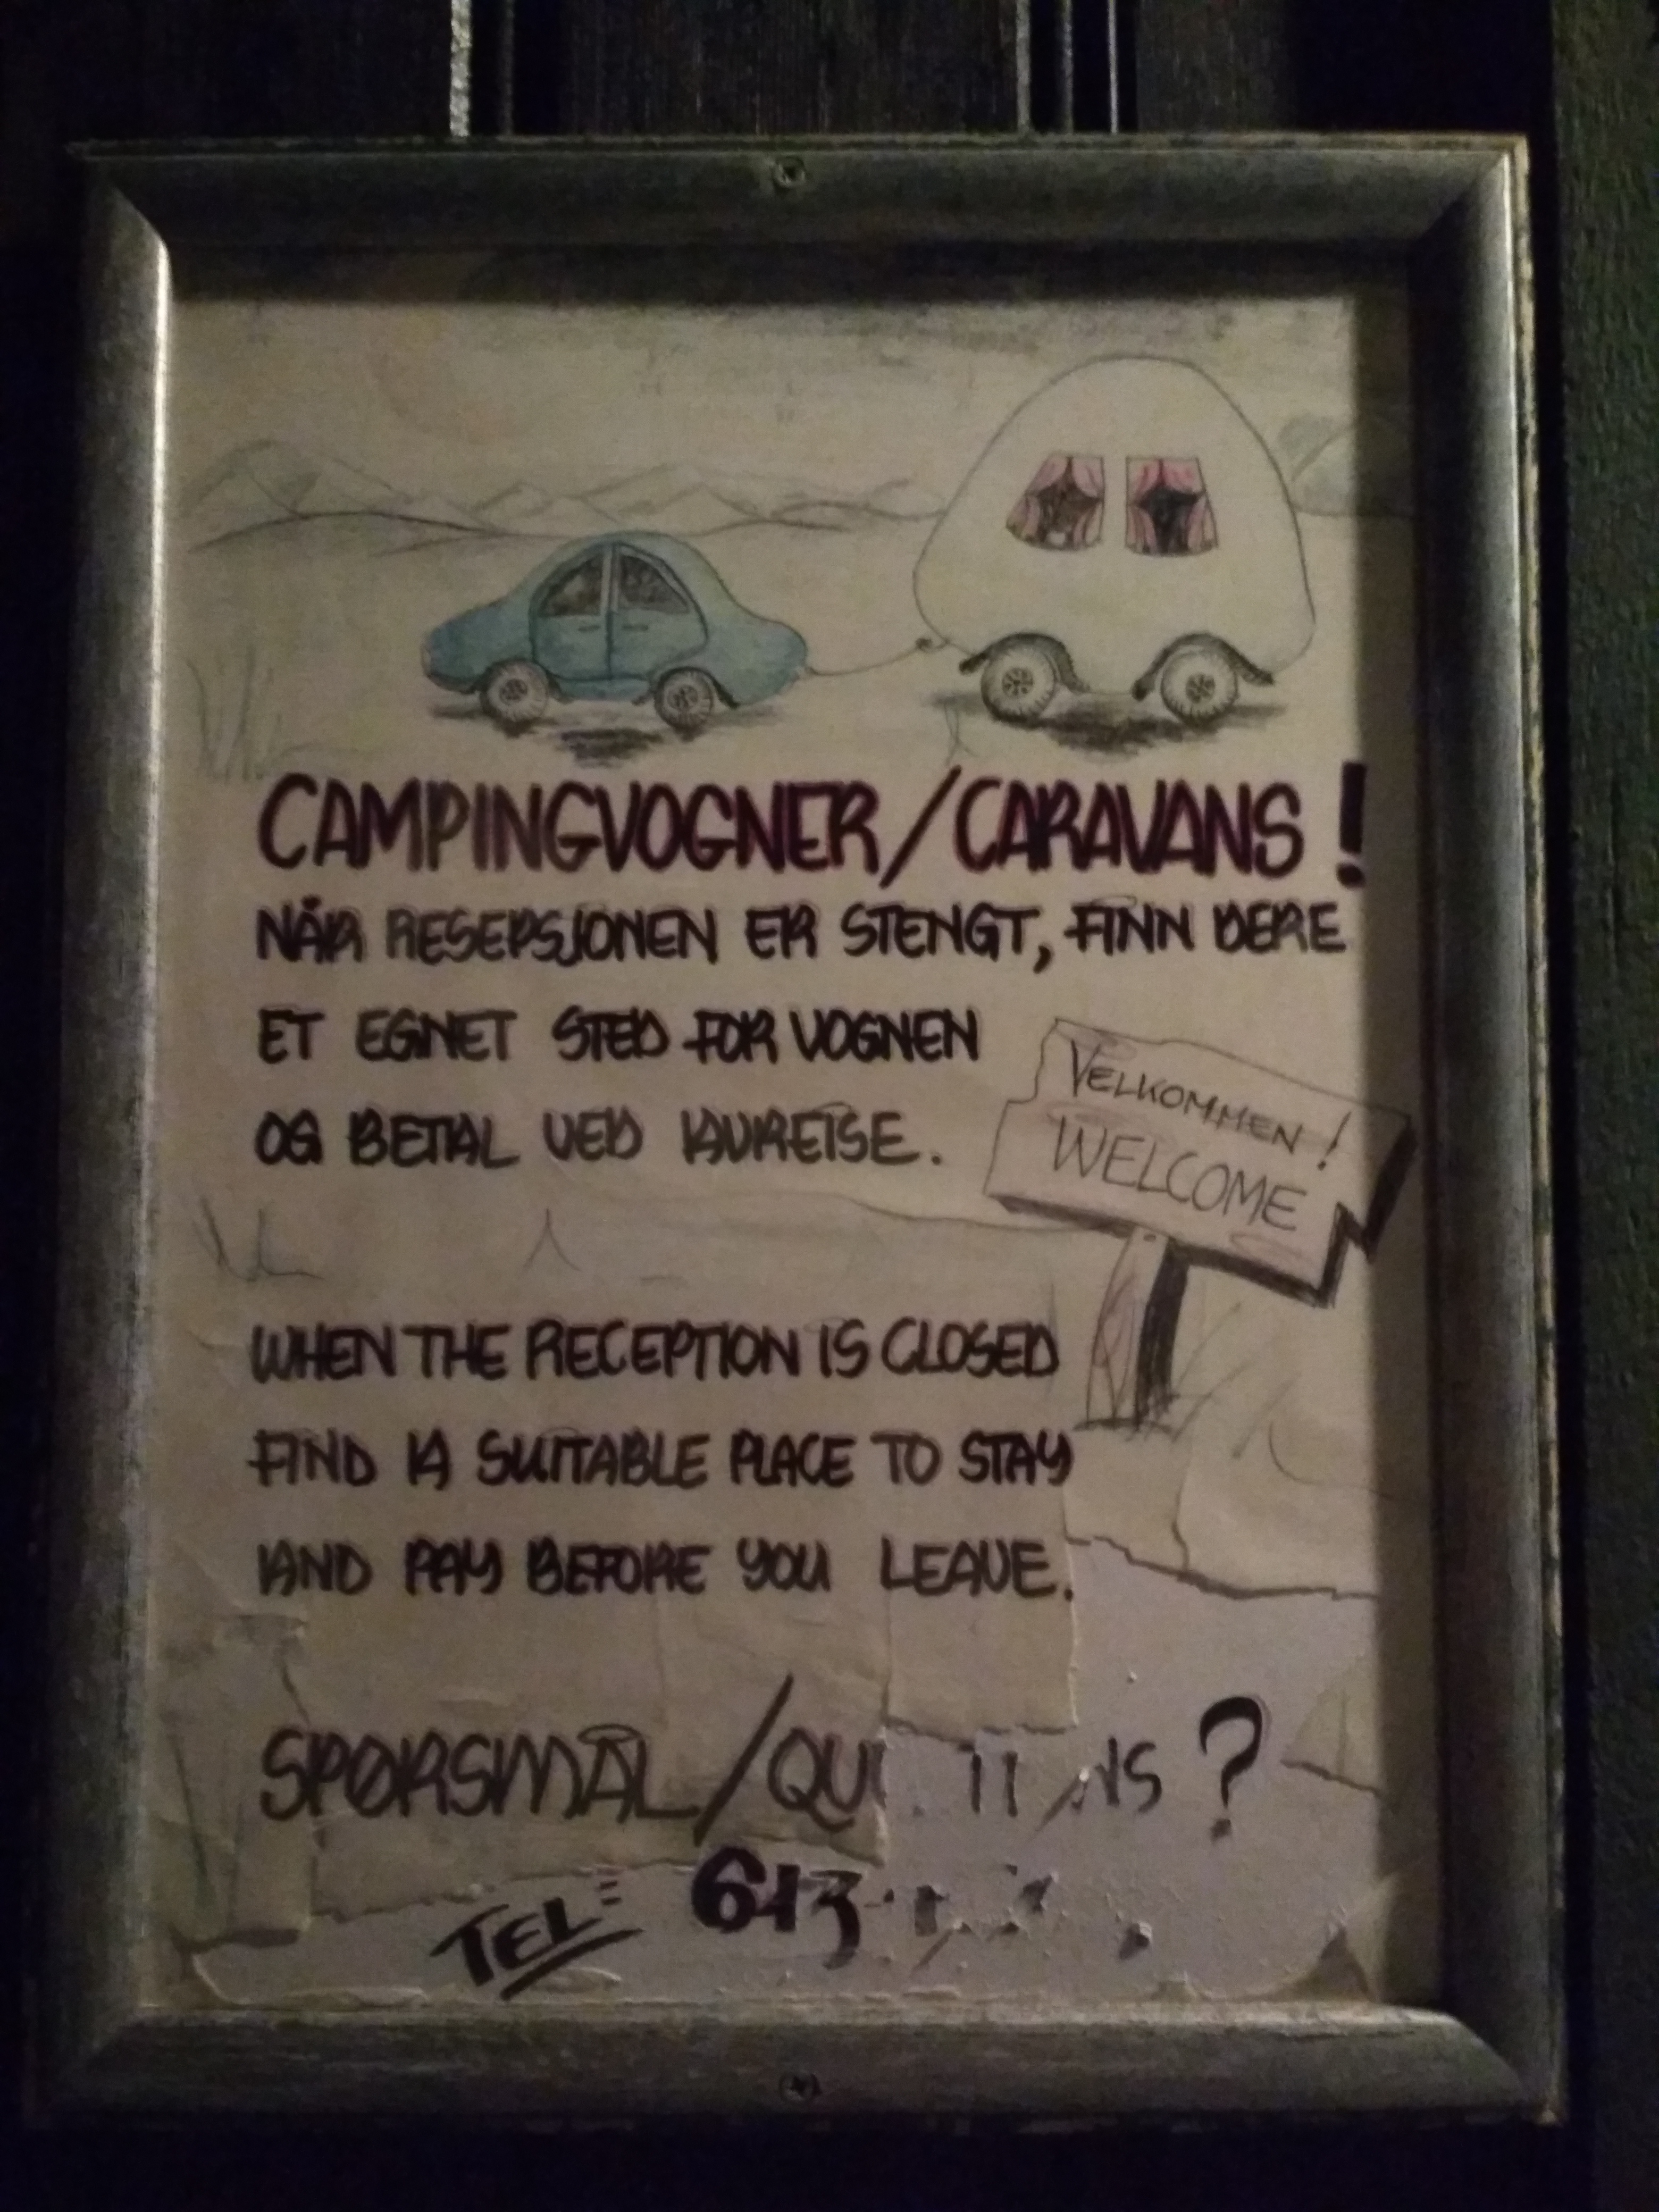 CAMPINGVOGNER/CARAVANS!
NÅR RESEPSJONEN ER STENGT, FINN DERE
ET EGNET STED FOR VOGNEN
OG BETAL VED AVREISE.
VELKOMMEN!
WELCOME
WHEN THE RECEPTION IS CLOSED
FIND A SUITABLE PLACE TO STAY
AND PAY BEFORE YOU LEAVE.
SPØRSMÅL/ ?
TEL: 613